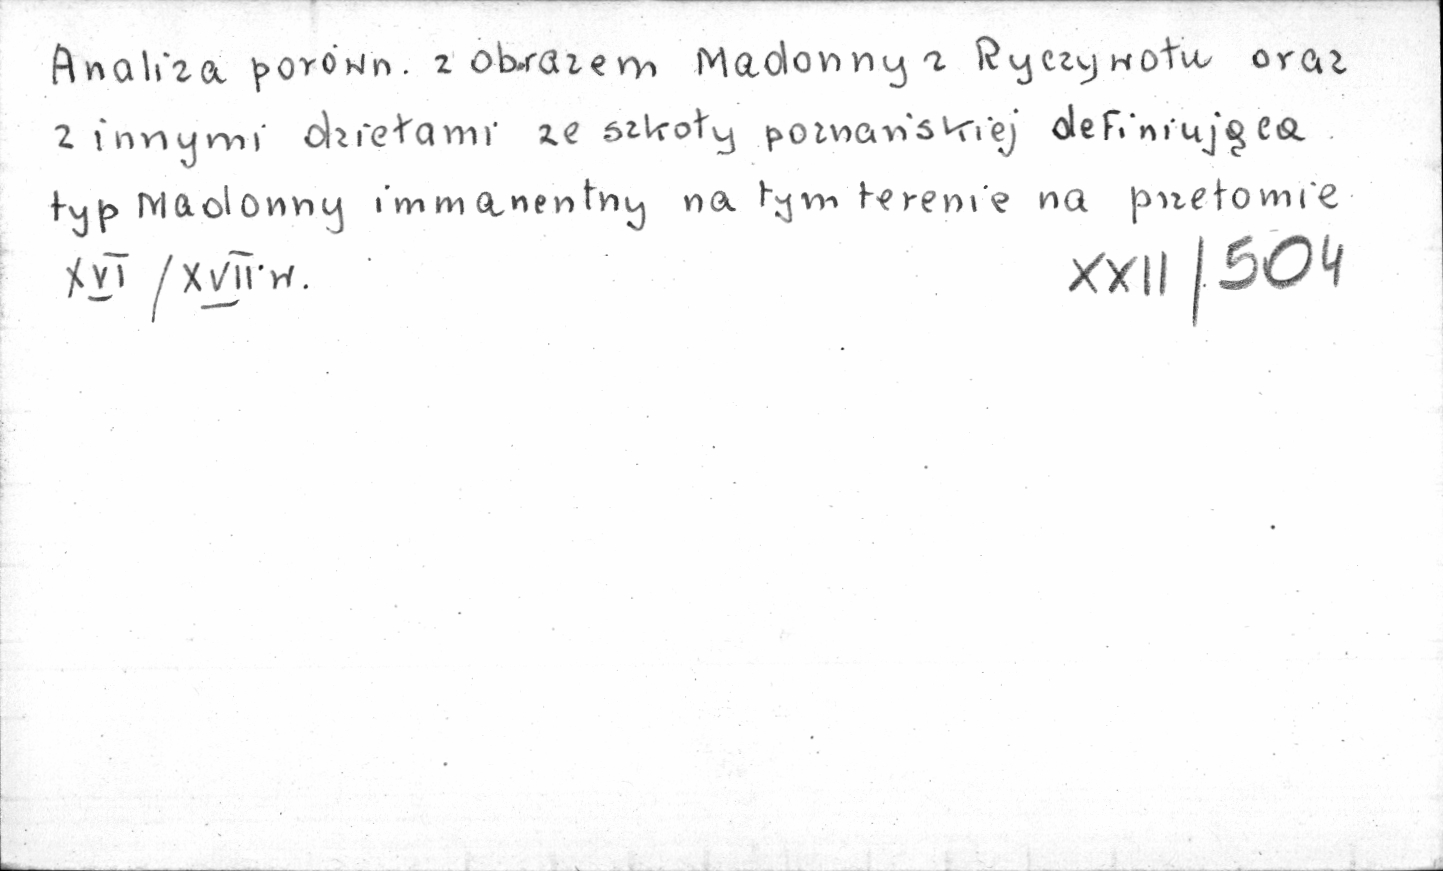 Analiza porówn. z obrazem Madonny z Ryczywołu oraz
z innymi dziełami ze szkoły poznańskiej definiująca
typ Madonny immanentny na tym terenie na przełomie
XVI / XVII w. XXII / 504